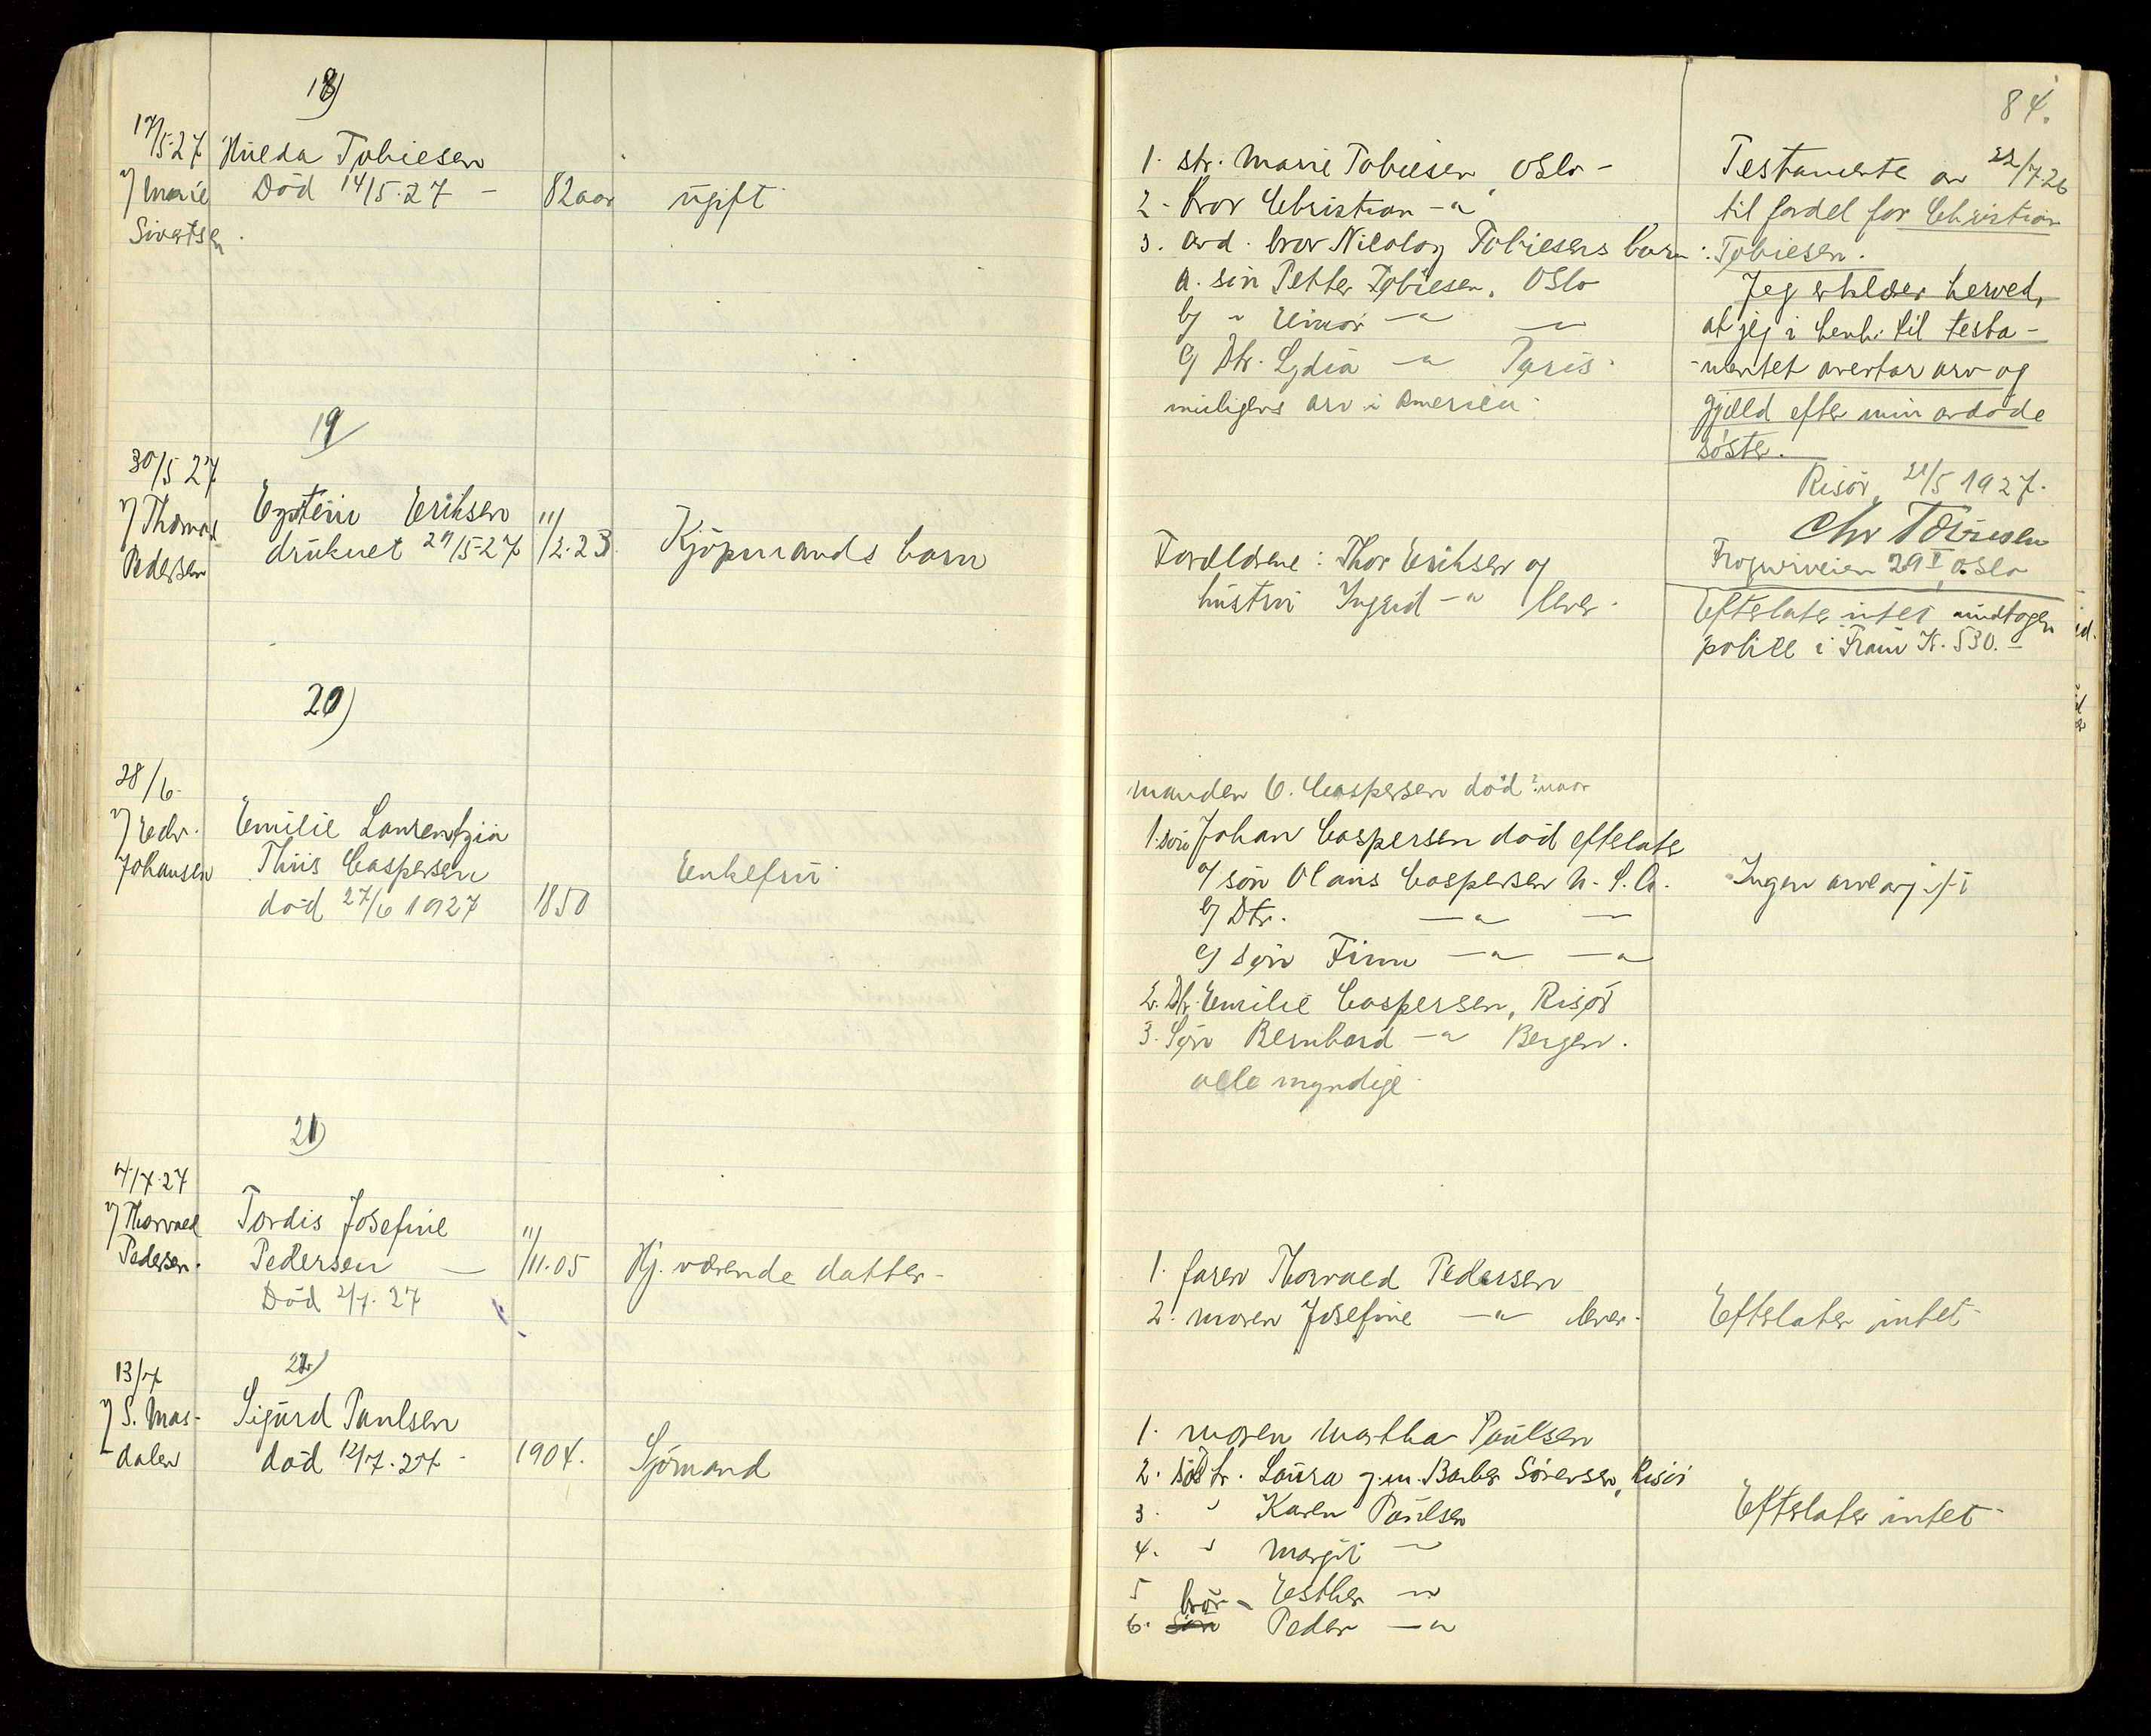 18)
17/5 27 Hulda Tobiesen
v/ Marie Död 14/5.27 - 82 aar ugift
Sivertsen
84.
1. str. Marie Tobiesen, Oslo -
2 - bror Christian -"-
3. avd. bror Nicolay Tobiesens barn:
a. sön Petter Tobiesen, Oslo
b/ " Einar -"- -"-
c/ Dtr. Lydia -"- Paris.
muligens arv i Amerika.
Testamente av 22/7 26
til fordel for Christian
Tobiesen.
Jeg erklærer herved,
at jeg i henh. til testa-
-mentet overtar arv og
gjæld efter min avdöde
söster.
Risör, 21/5 1927.
Chr Tobiesen
Frognerveien 29 I, Oslo
19/
30/5 27
v/ Thomas Eystein Eriksen 11/
Pedersen druknet 29/5 27 /2.23. Kjöpmands barn
Forældrene: Thor Eriksen og
hustru Ingrid -"- lever.
Efterlater intet, undtagen
police i Fram Kr. 530.-
20)
28/6.
v/ Edv. Emilie Laurentzia
Johansen Thiis Caspersen
död 27/6 1927 1850 Enkefru
manden C. Caspersen död ? naar
1. sön Johan Caspersen död efterlater
a/ sön Olaus Caspersen U. S. A.
b/ Dtr. -"- -"-
c/ sön Finn -"- -"-
2. Dtr. Emilie Caspersen, Risör
3. Sön Bernhard -"- Bergen.
alle myndige.
Ingen arveavgift
21)
4/7.27
v/ Thorvald Tordis Josefine 11/
Pedersen. Pedersen - /11.05 Hj. værende datter -
Död 2/7. 27
1. faren Thorvald Pedersen
2. moren Josefine -"- lever.
Efterlater intet
22)
13/7
v/ S. Mas- Sigurd Paulsen
-dalen död 12/7.27. 1904. Sjömand
1. moren Martha Paulsen
2. Laura g.m. Barber Sörensen, Risör
3. " Karen Paulsen
4. " Margit -"-
5 " Esther -"-
6. sön bror Peder -"-
Efterlater intet